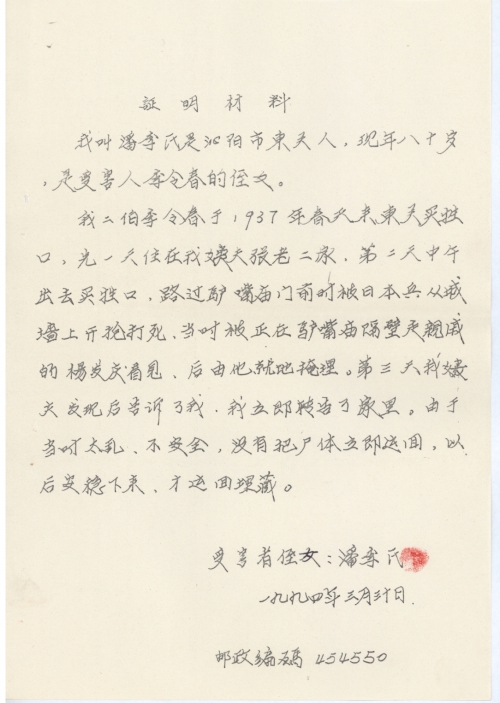 証明材料
我叫潘李氏是沁阳市東关人，现年八十岁
，是受害人李令春的侄女。
我二伯李令春于1937年春天来東关买牲
口，先一天住在我嬏夫张老二家，第二天中午
出去买牲口，路过驴嘴庙门前时被日本兵从城
墙上开抢打死，当时被正在驴嘴庙隔壁走親戚
的杨发庆看见，后由他就地掩埋。第三天我
夫发现后告诉了我，我立即转告了家里。由于
当时太乱、不安全，没有把尸体立即运回，以
后安稳下来，才运回埋藏。
受害者侄女：潘李氏
一九九四年三月三十日
邮政编码 454550